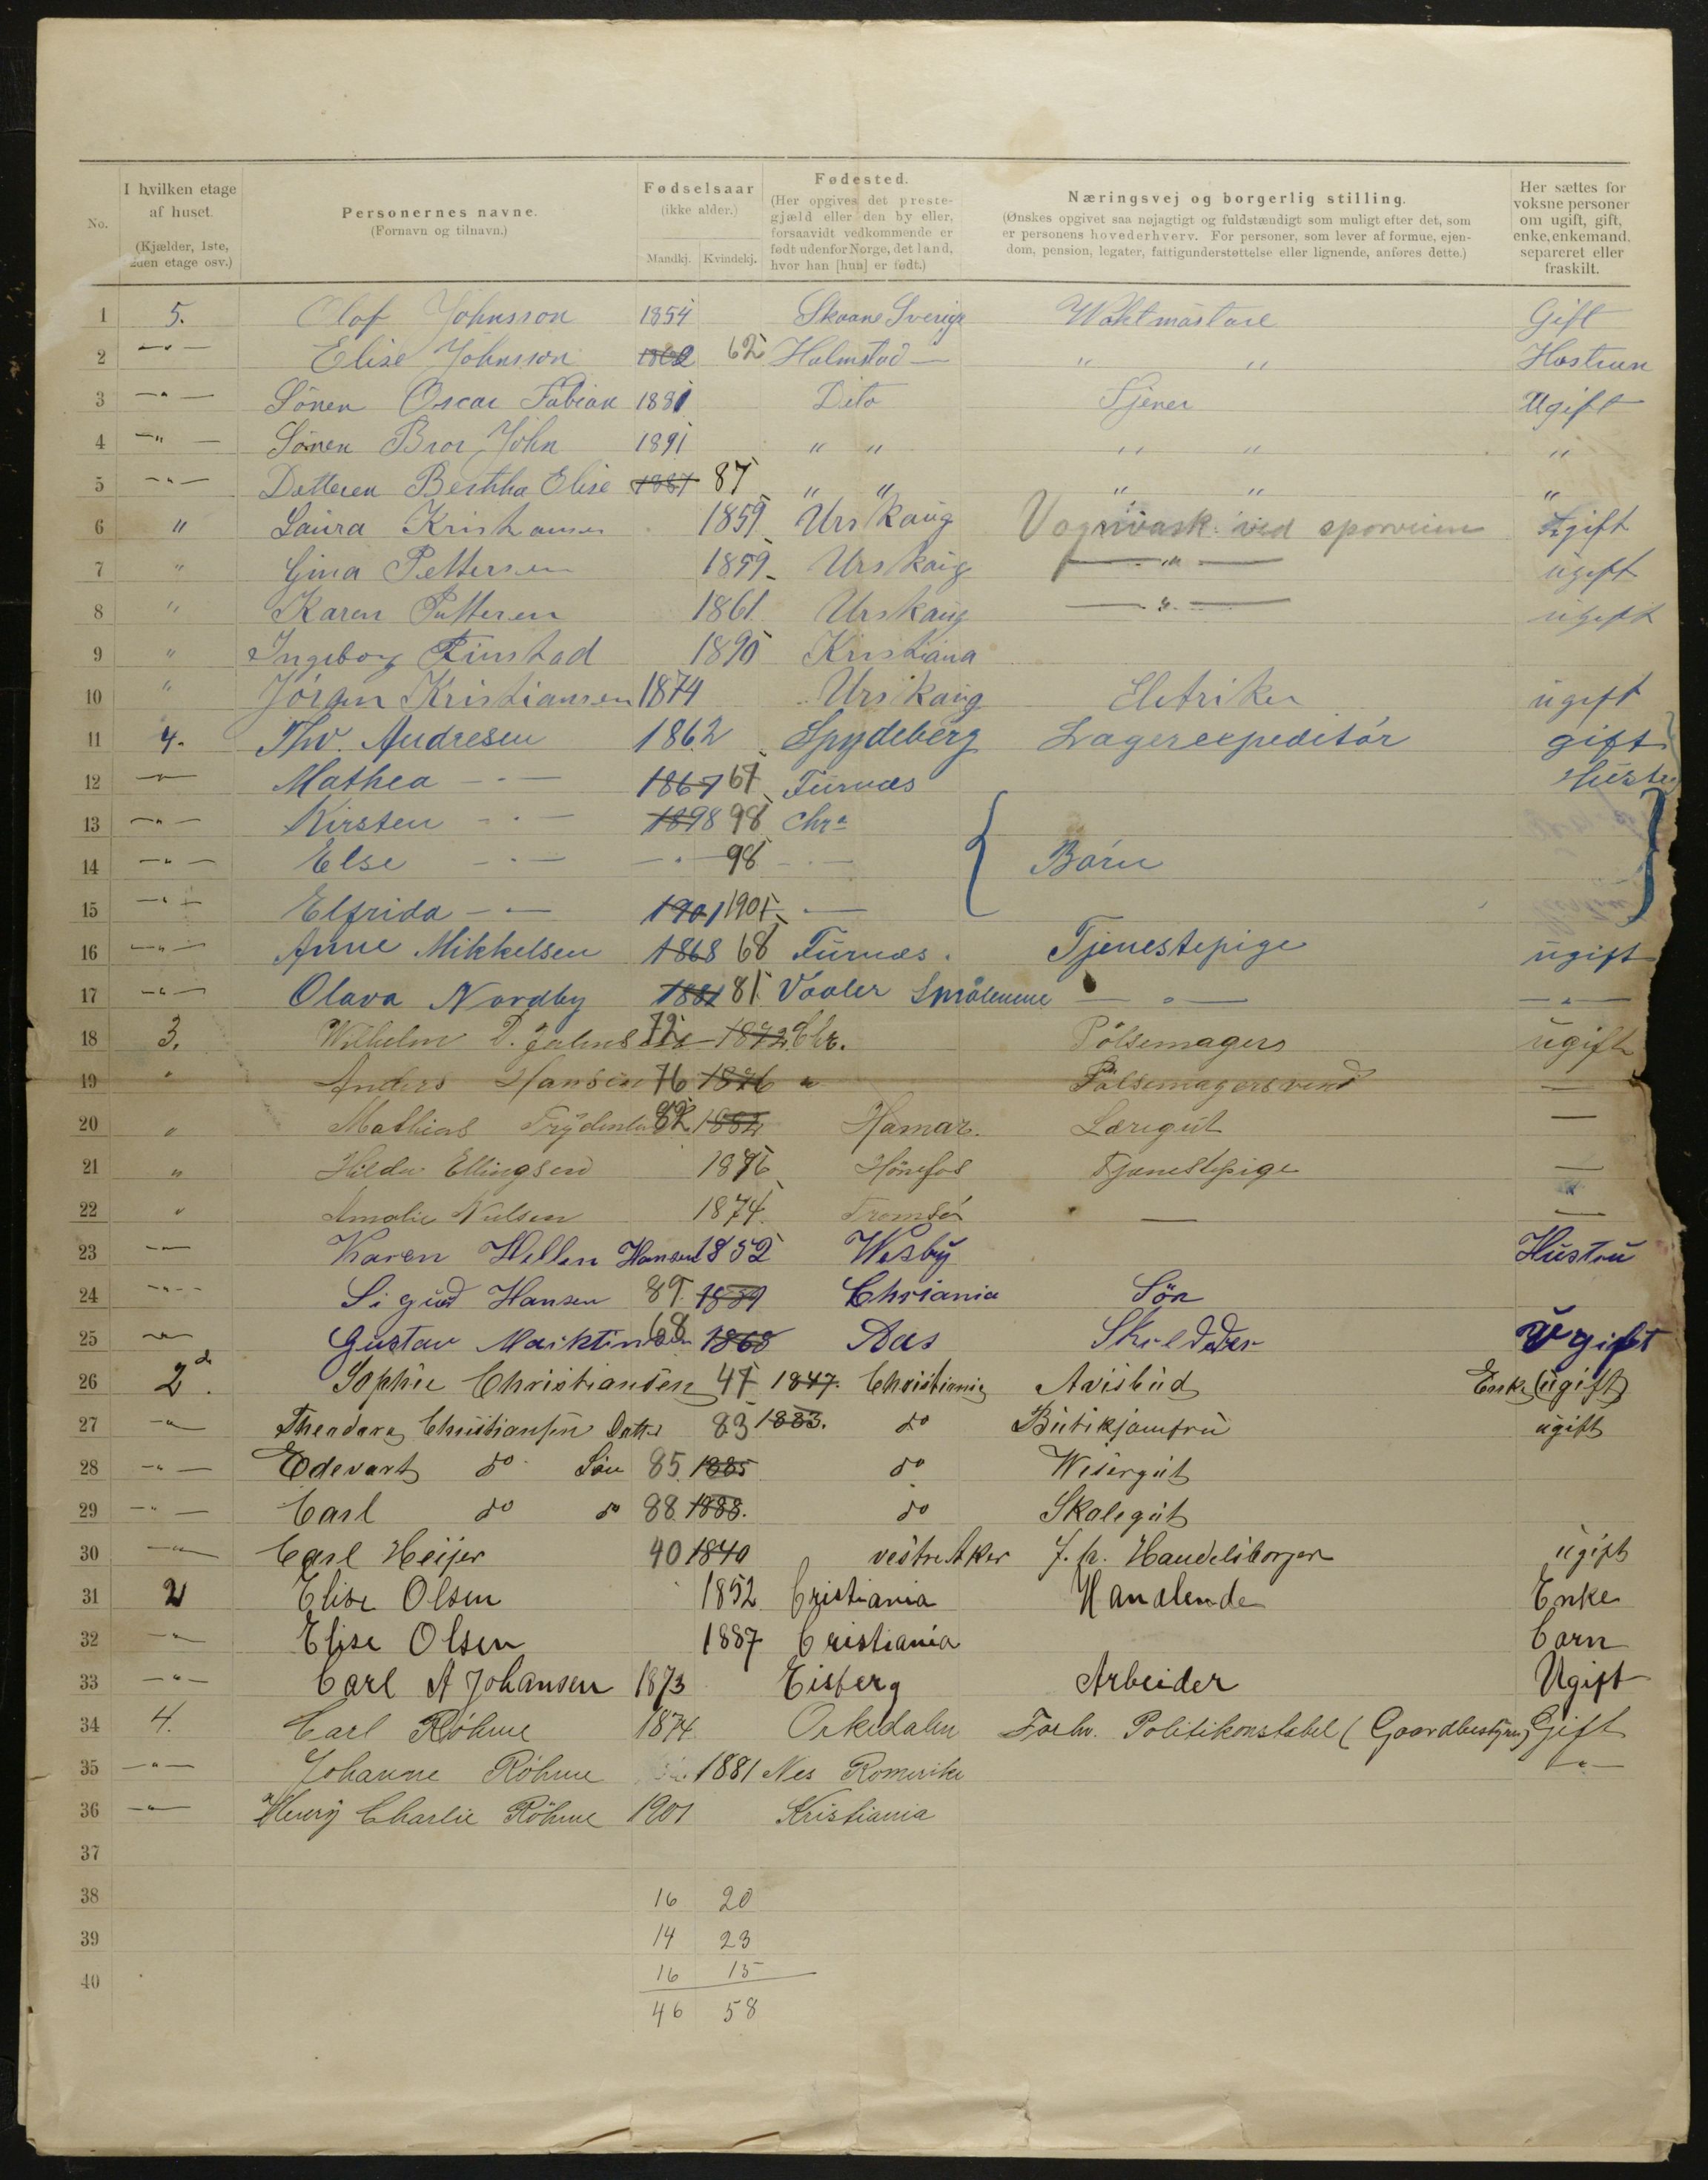 No.
I hvilken etage af huset. (Kjælder, 1ste, 2den etage osv.)
Personernes navne. (Fornavn og tilnavn.)
Fødselsaar (ikke alder.) Mandkj. Kvindekj.
Fødested. (Her opgives det prestegjæld eller den by eller, forsaavidt vedkommende er født udenfor Norge, det land, hvor han [hun] er født.)
Næringsvej og borgerlig stilling. (Ønskes opgivet saa nøjagtigt og fuldstændigt som muligt efter det, som er personens hovederhverv. For personer, som lever af formue, ejendom, pension, legater, fattigunderstøttelse eller lignende, anføres dette.)
Her sættes for voksne personer om ugift, gift, enke, enkemand, separeret eller fraskilt.
1 5. Olof Johnsson 1854 Skaane Sverige Waktmästare Gift
2 — " — Elise Johnsson 1862 62 Halmstad — " " Hostrun
3 — " — Sönen Oscar Fabian 1881 Dito Tjener Ugift
4 — " — Sönen Bror John 1891 " " " " "
5 — " — Datteren Bertha Elise 1887 87 " " " " "
6 " Laura Kristiansen 1859 Urskaug Vognvask ved sporveien ugift
7 " Gina Pettersen 1859 Urskaug — " — ugift
8 " Karen Pettersen 1861 Urskaug — " — ugift
9 " Ingeborg Finstad 1890 Kristiania
10 " Jörgen Kristiansen 1874 Urskaug Eletriker ugift
11 4. Thv. Andresen 1862 Spydeberg Lagerexpeditör gift
12 — " — Mathea — " — 1867 67 Furnæs Hustru
13 — " — Kirsten — " — 1898 98 Chra
14 — " — Else — " — — " — 98 — " — Börn
15 — " — Elfrida — " — 1901 1901 — " —
16 — " — Anne Mikkelsen 1868 68 Furnæs. Tjenestepige ugift
17 — " — Olava Nordby 1881 81 Vaaler Smålenene — " — — " —
18 3. Wilhelm D. 72 1872 Chr. Pölsemagers ugift
19 " Anders Hansen 76 1876 " Pölsemagersvend —
20 " Mathias 82 1882 Hamar. Læregut —
21 " Hilda Ellingsen 1876 Hönefos Tjenestepige —
22 " Amalie Nielsen 1874 Tromsö — —
23 — " — Karen Hellen Hansen 1852 Wesby Hustru
24 — " — Sigud Hansen 89 1889 Chriania Sön
25 — " — Gustav Marktinsen 68 1868 Aas Skredder Ugift
26 2d. Sophie Christiansen 47 1847. Christiania Avisbud Enke (ugift)
27 — " — Theodora Christiansen Datter 83 1883. do Butikjomfru ugift
28 — " — Edevart do Sön 85 1885 do Wisergut
29 — " — Carl do do 88 1888. do Skolegut
30 — " — Carl Heijer 40 1840 vestre Aker f. h. Handelsborger ugift
31 2 Elise Olsen 1852 Cristiania Handlende Enke
32 — " — Elise Olsen 1887 Cristiania barn
33 — " — Carl A Johansen 1873 Eisberg Arbeider Ugift
34 4. Carl Röhme 1874 Orkedalen Forhv. Politikonstabel (Gaardbestyrer) Gift
35 — " — Johanne Röhme 1881 Nes Romerike — " —
36 — " — Henry Charlie Röhme 1901 Kristiania
37
38 16 20
39 14 23
40 16 15
46 58